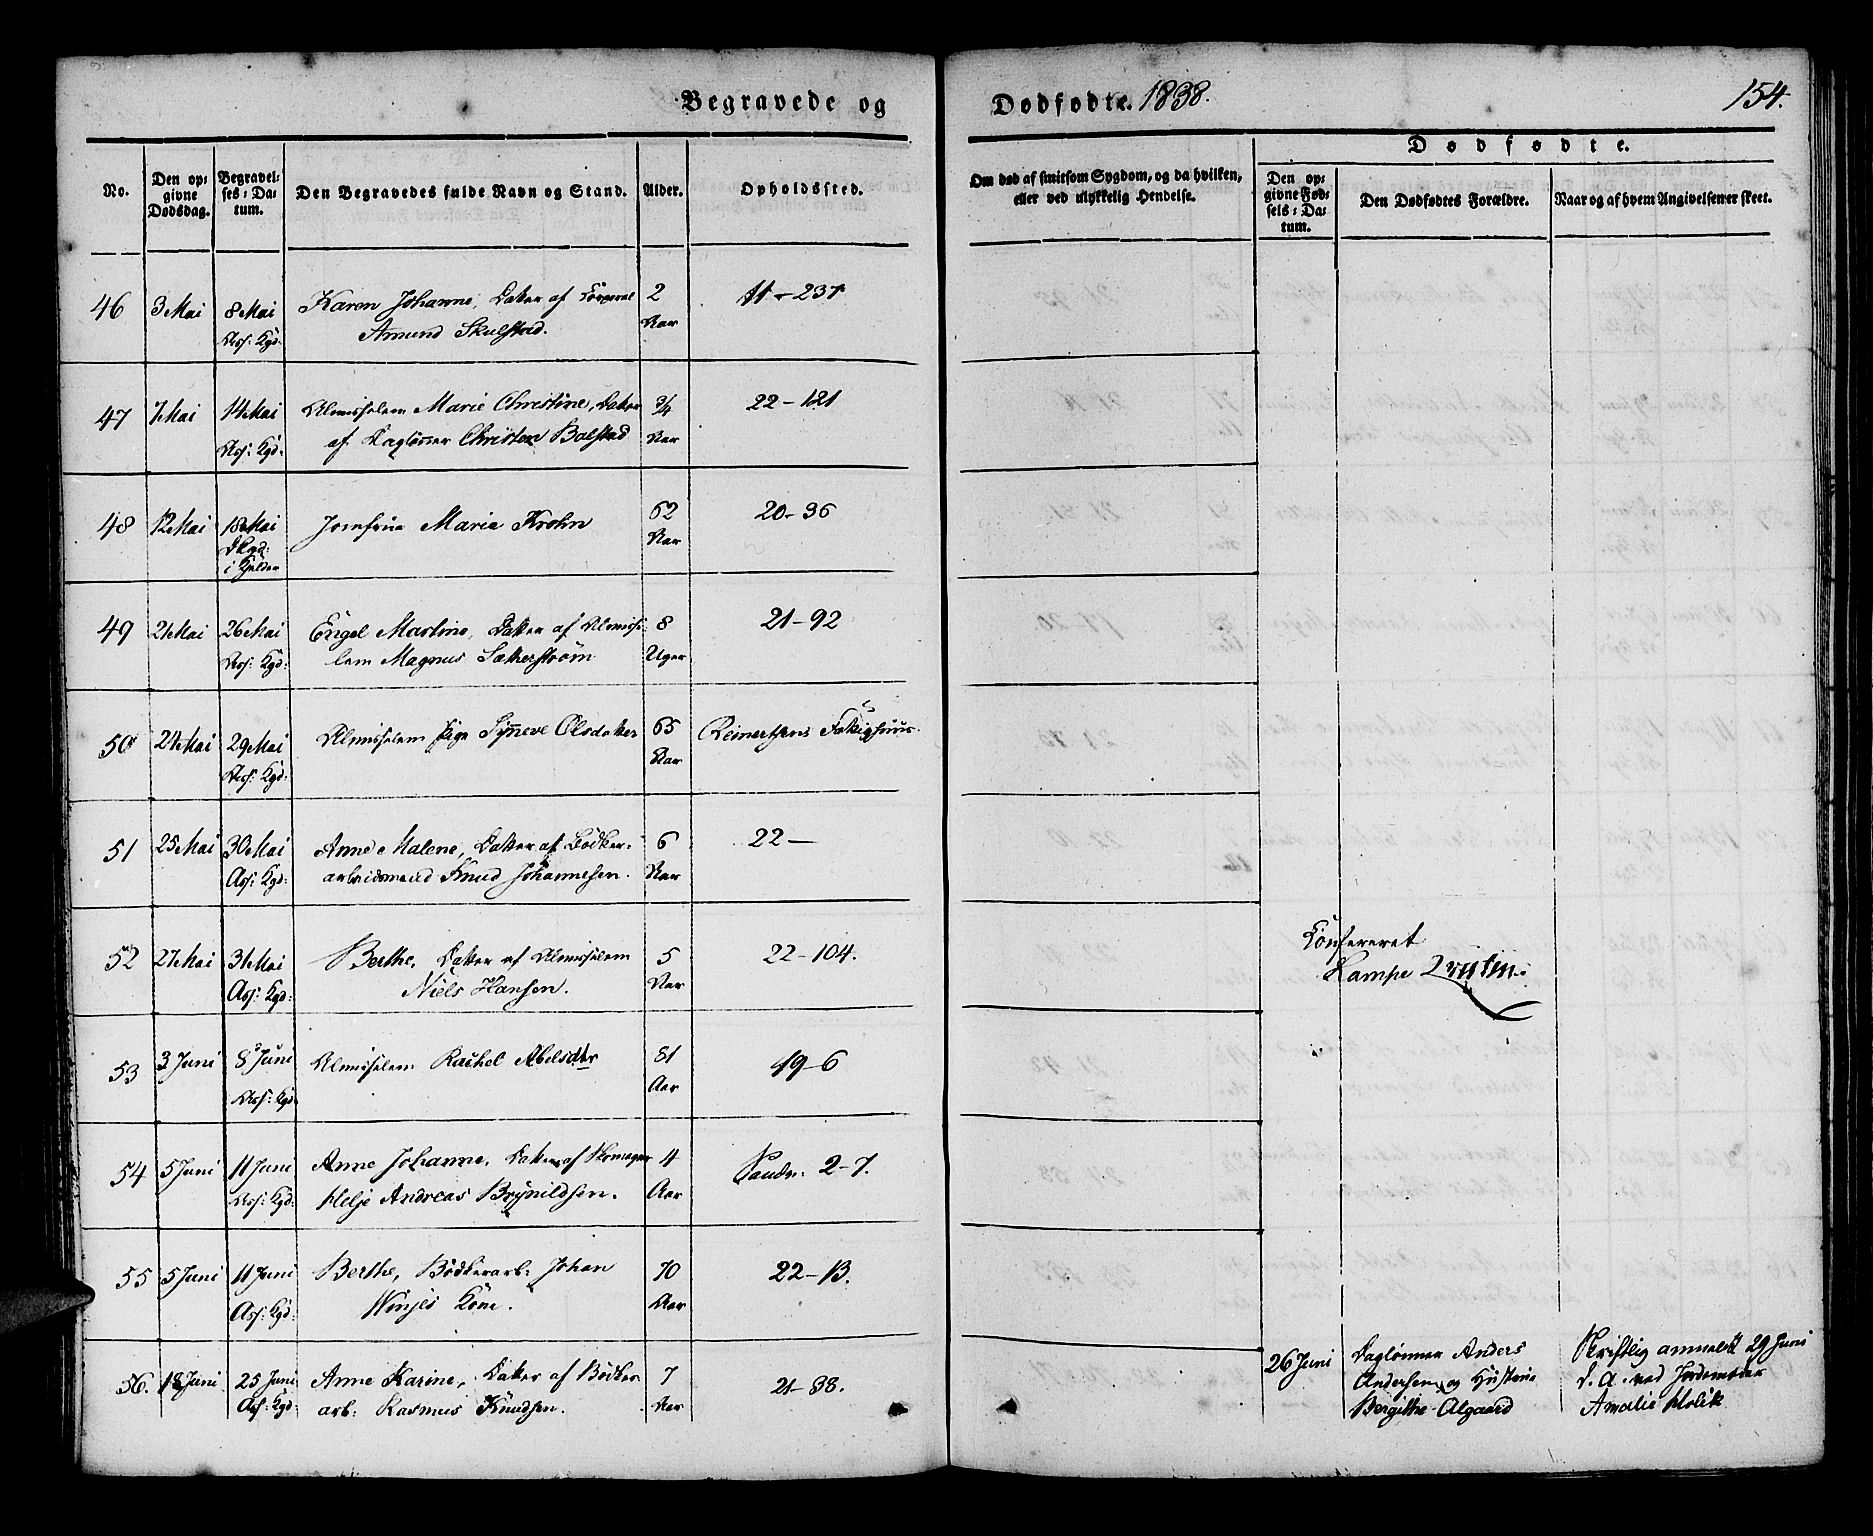 Begravede og Dødfødte. 1838. 154.
No. | Den opgivne Dødsdag. | Begravelses-Datum. | Den Begravedes fulde Navn og Stand. | Alder. | Opholdssted. | Om død af smitsom Sygdom, og da hvilken, eller ved ulykkelig Hendelse. | Dødfødte.
Den opgivne Fødsels-Datum. | Den Dødfødtes Forældre. | Naar og af hvem Angivelsener skeet.
46 3 Mai 8 Mai Karen Johanne, Datter af 2 11 - 237
Ass: Kgd: Amund Skulstad. Aar
47 7 Mai 14 Mai Almisselem Marie Christine, Datter 3/4 22 - 121
Ass: Kgd: af Dagløner Christen Bolstad Aar
48 12 Mai 18 Mai Jomfrue Maria Krohn 62 20 - 36
Dkgd: Aar
i Kjelder
49 21 Mai 26 Mai Engel Martine, Datter af Almisse- 8 21 - 92
Ass: Kgd: lem Magnus Sætherstrøm Uger
50 24 Mai 29 Mai Almisselem Pige Synneve Olsdatter 65 Reinertsens Fattighuus.
Ass: Kgd: Aar
51 25 Mai 30 Mai Anne Malene, Datter af Bødker- 6 22 —
Ass: Kgd: arbeidsmand Knud Johannesen. Aar
52 27 Mai 31 Mai Berthe, Datter af Almisselem 5 22 - 104.
Ass: Kgd: Niels Hansen. Aar
Confereret
53 3 Juni 8 Juni Almisselem Rachel Abelsdtr 81 19 - 6
Ass: Kgd: Aar
54 5 Juni 11 Juni Anne Johanne, Datter af Skomager 4 Sandv. 2 - 7.
Ass: Kgd: Helje Andreas Brynildsen. Aar
55 5 Juni 11 Juni Berthe, Bødkerarb: Johan 70 22 - 13.
Ass: Kgd: Winjes Kone. Aar
56. 18 Juni 25 Juni Anne Karine, Datter af Bødker 7 21 - 88.
Ass: Kgd: arb: Rasmus Knudsen. Aar
26 Juni Daglønner Anders Skriftlig anmeldt 29 Juni
Andersen og Hustrue d. A. ved Jordemoder
Bergithe Algaard Amalie Holck